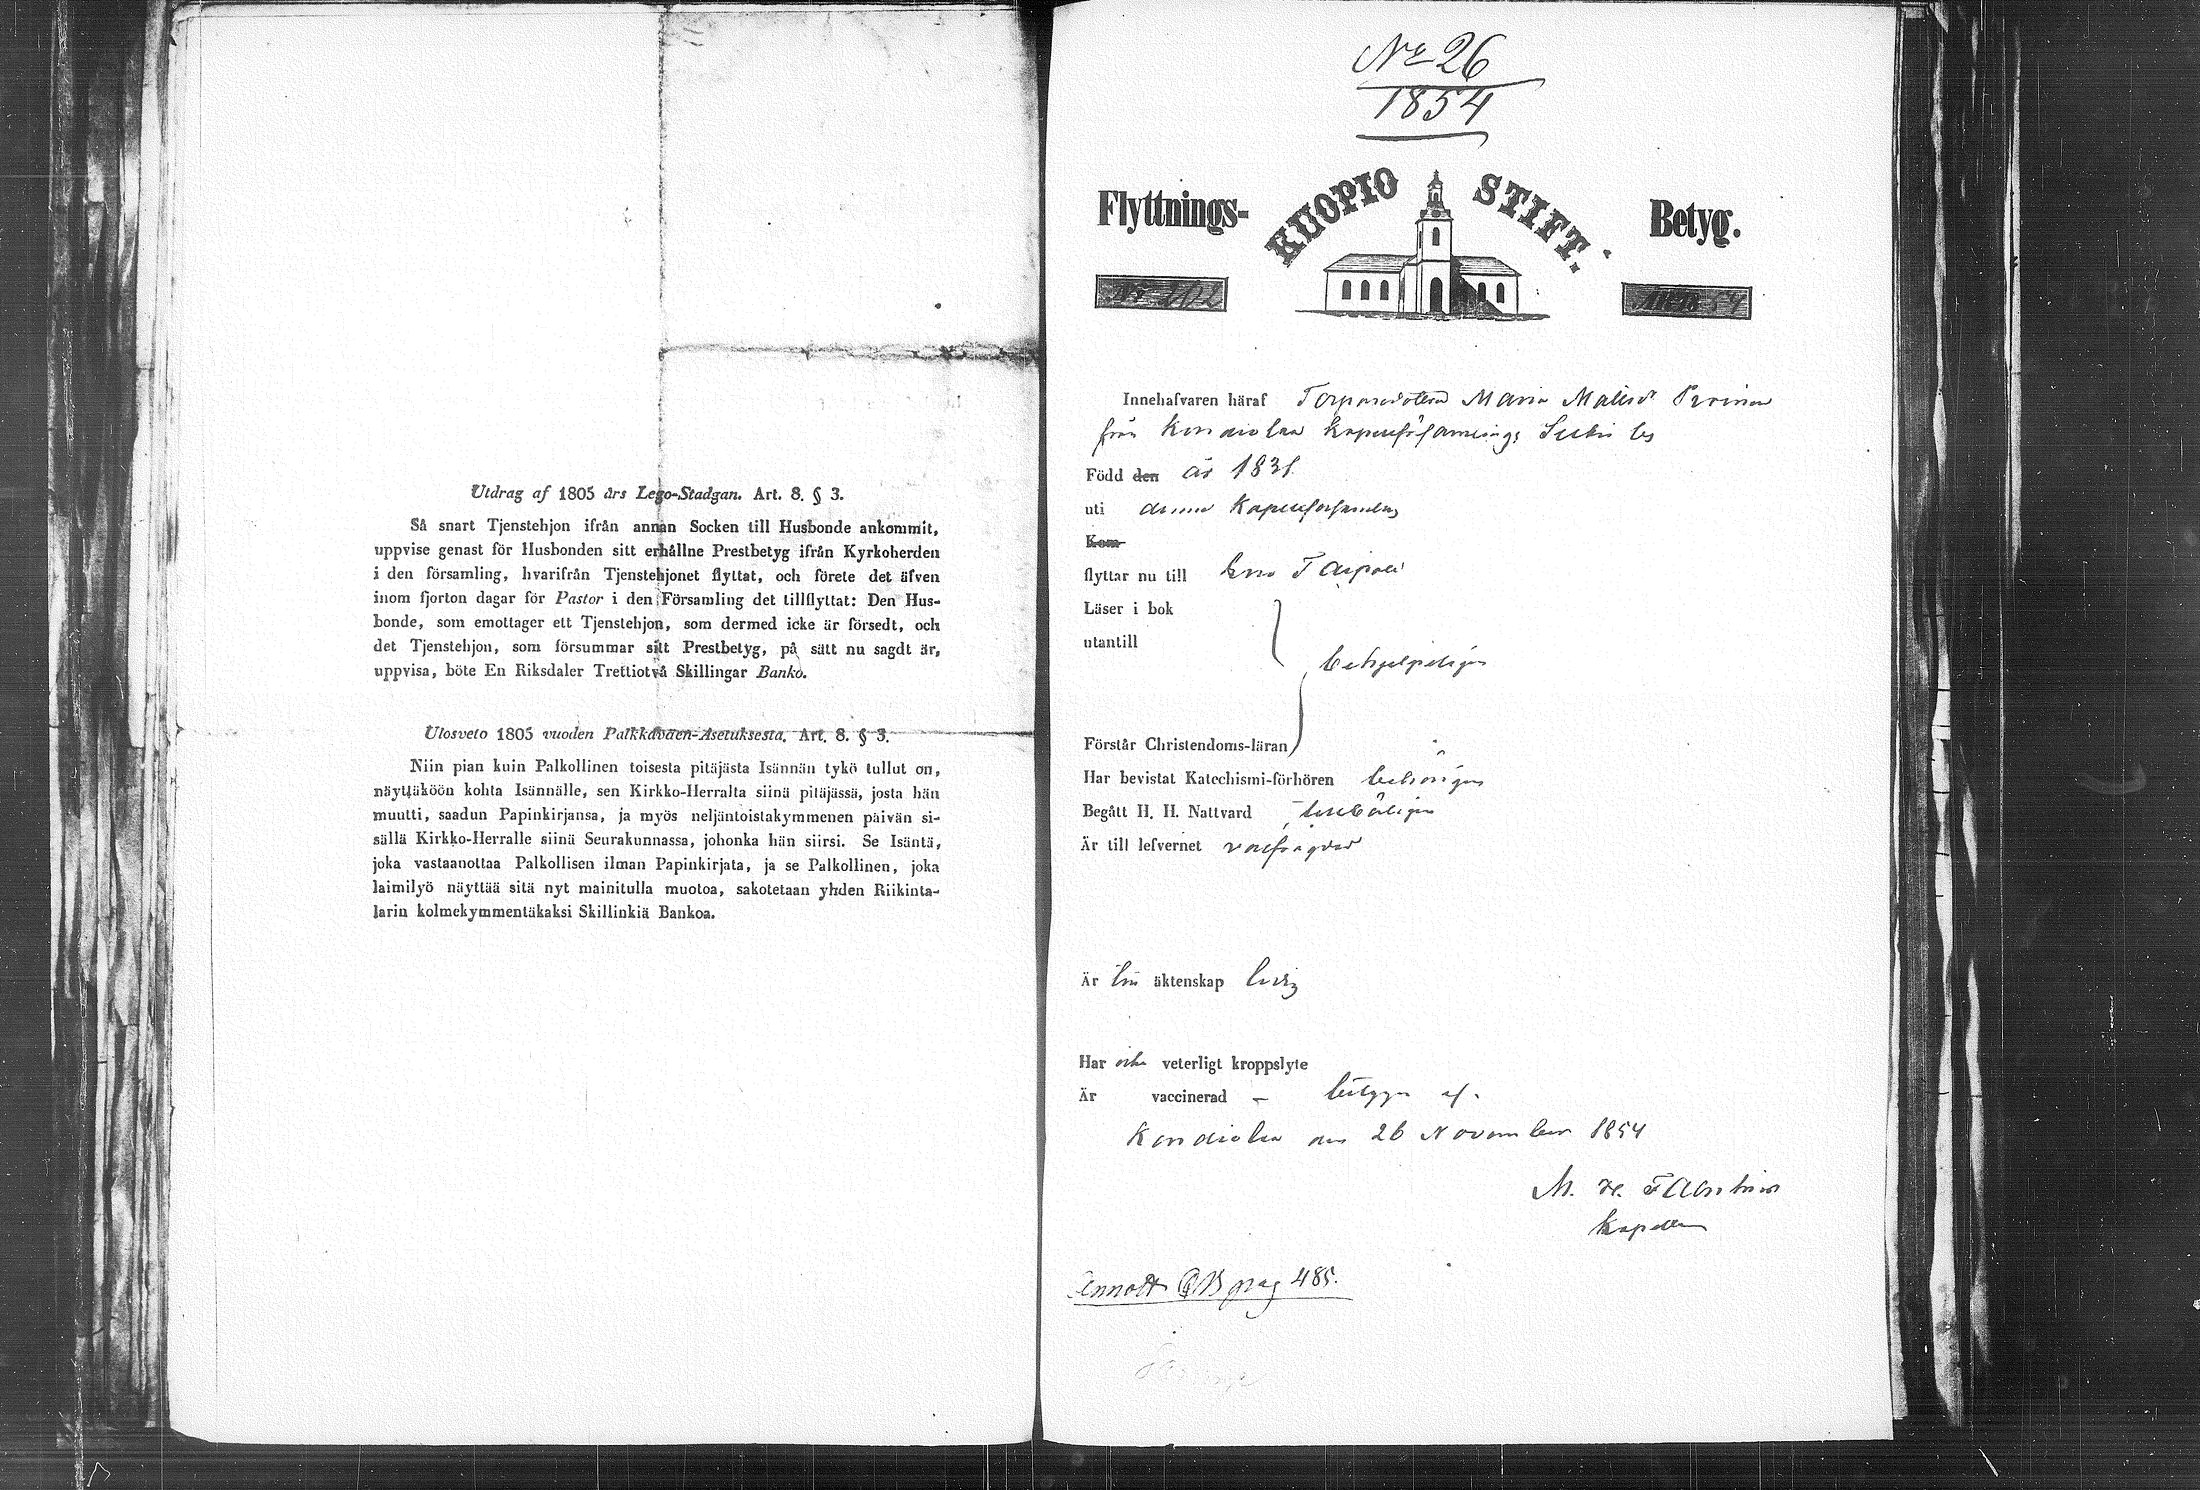 Utdrag af 1805 års Lego-Stadgan. Art. 8. § 3.
Så snart Tjenstehjon ifrån annan Socken till Husbonde ankommit,
uppvise genast för Husbonden sitt erhållne Prestbetyg ifrån Kyrkoherden
i den församling, hvarifrån Tjenstehjonet flyttat, och förete det äfven
inom fjorton dagar för Pastor i den Församling det tillflyttat: Den Hus-
bonde, som emottager ett Tjenstehjon, som dermed icke är försedt, och
det Tjenstehjon, som försummar sitt Prestbetyg, på sätt nu sagdt är,
uppvisa, böte En Riksdaler Trettiotvå Skillingar Banko.
Ulosveto 1805 vuoden Palkkaväen-Asetuksesta. Art. 8. § 3.
Niin pian kuin Palkollinen toisesta pitäjästa Isännän tykö tullut on,
näyttäköön kohta Isännälle, sen Kirkko-Herralta siinä pitäjässä, josta hän
muutti, saadun Papinkirjansa, ja myös neljäntoistakymmenen päivän si-
sällä Kirkko-Herralle siinä Seurakunnassa, johonka hän siirsi. Se Isäntä,
joka vastaanottaa Palkollisen ilman Papinkirjata, ja se Palkollinen, joka
laimilyö näyttää sitä nyt mainitulla muotoa, sakotetaan yhden Riikinta-
larin kolmekymmentäkaksi Skillinkiä Bankoa.
No 26
1854
Flyttnings- KUOPIO STIFT. Betyg.
No 202 54
Innehafvaren häraf Maria
från
Född den år 1831
uti denna
Kom
flyttar nu till Eno
Läser i bok
utantill
behjelpeligen
Förstår Christendoms-läran
Har bevistat Katechismi-förhören behörigen
Begått H. H. Nattvard
Är till lefvernet
Är till äktenskap ledig
Har icke veterligt kroppslyte
Är vaccinerad – betygar
den 26 November 1854
M.
Kapellan
Annott pag 485.